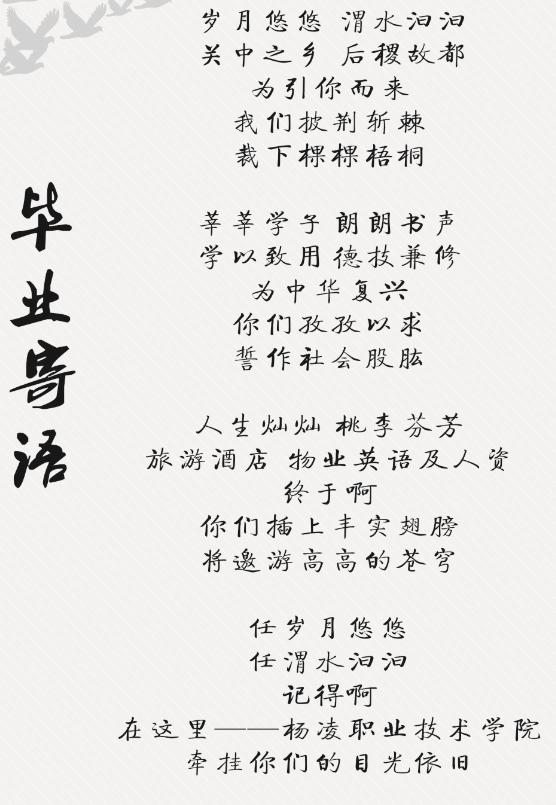 毕业寄语
岁月悠悠 渭水汩汩
关中之乡 后稷故都
为引你而来
我们披荆斩棘
裁下棵棵梧桐
莘莘学子 朗朗书声
学以致用 德技兼修
为中华复兴
你们孜孜以求
誓作社会股肱
人生灿灿 桃李芬芳
旅游酒店 物业英语及人资
终于啊
你们插上丰实翅膀
将遨游高高的苍穹
任岁月悠悠
任渭水汩汩
记得啊
在这里——杨凌职业技术学院
牵挂你们的目光依旧